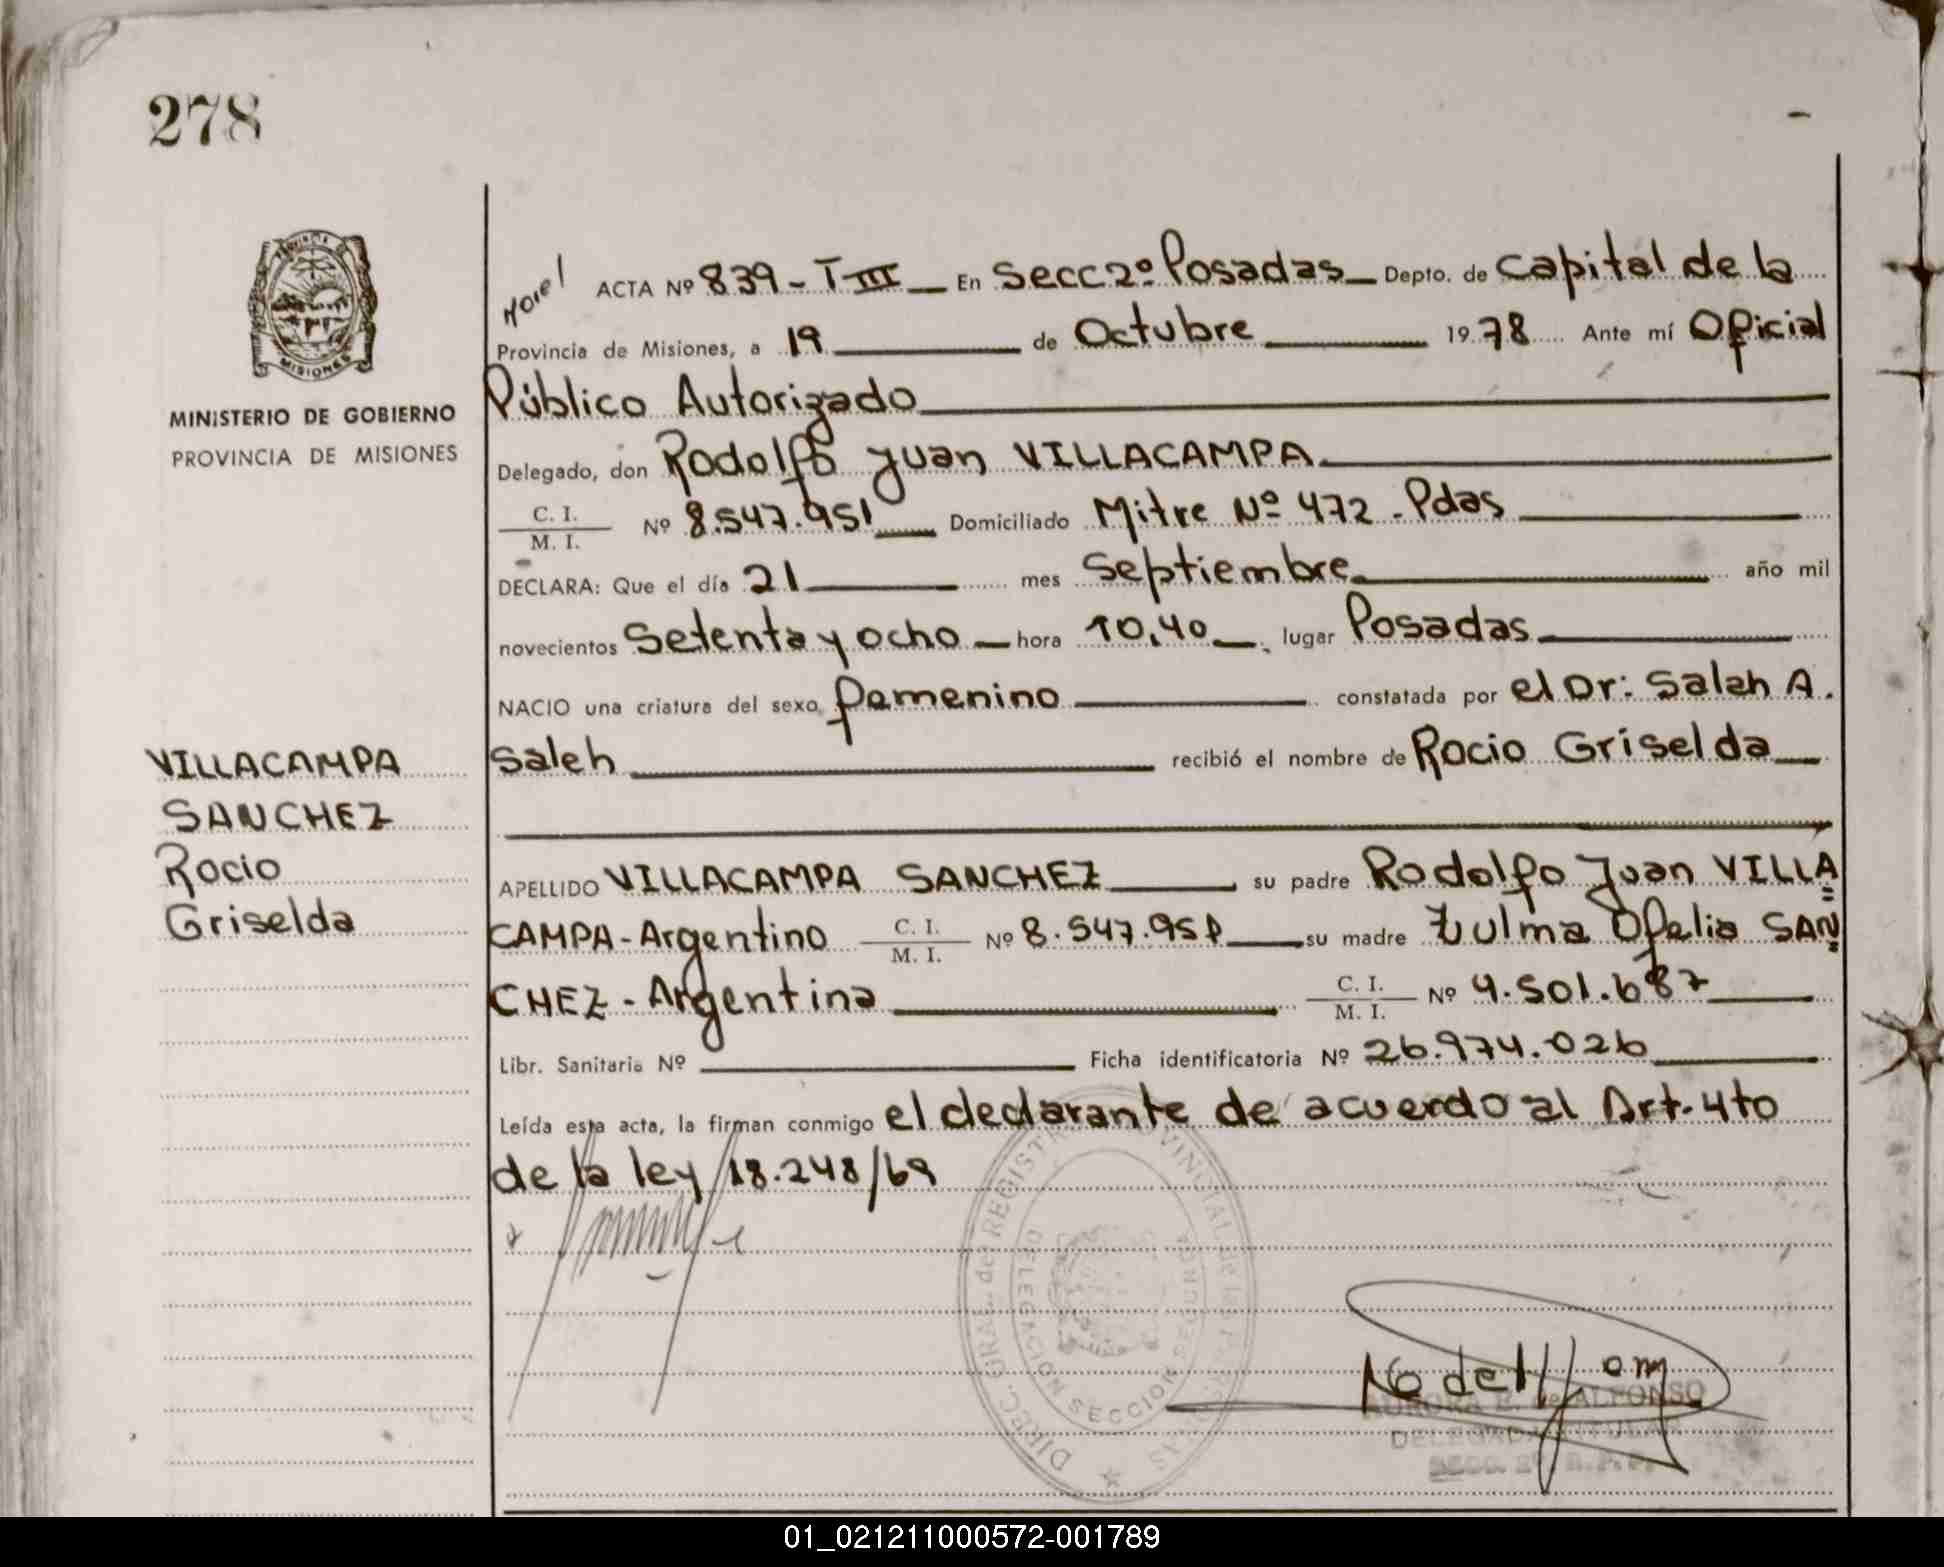 278
PROVINCIA DE
MISIONES
MINISTERIO DE GOBIERNO
PROVINCIA DE MISIONES
VILLACAMPA
SANCHEZ
Rocio
Griselda
ACTA Nº 839 - T III En Secc 2º Posadas Depto. de Capital de la
Provincia de Misiones, a 19 de Octubre 1978 Ante mí Oficial
Público Autorizado
Delegado, don Rodolfo Juan VILLACAMPA
C. I. / M. I. Nº 8.547.951 Domiciliado Mitre Nº 472 - Pdas
DECLARA: Que el día 21 mes Septiembre año mil
novecientos Setenta y ocho hora 10,40 lugar Posadas
NACIO una criatura del sexo femenino constatada por el Dr: Saleh A.
Saleh recibió el nombre de Rocio Griselda
APELLIDO VILLACAMPA SANCHEZ su padre Rodolfo Juan VILLA=
CAMPA - Argentino C. I. / M. I. Nº 8.547.951 su madre Zulma Ofelia SAN=
CHEZ - Argentina C. I. / M. I. Nº 4.501.687
Libr. Sanitaria Nº Ficha identificatoria Nº 26.974.026
Leída esta acta, la firman conmigo el declarante de acuerdo al Art. 4to
de la ley 18.248/69
DIREC. GRAL. del REGISTRO PROVINCIAL de las PERSONAS
DELEGACION SECCION SEGUNDA
AURORA E. de ALFONSO
DELEGADA TITULAR
SECC. 2º R.P.P.
01_021211000572-001789